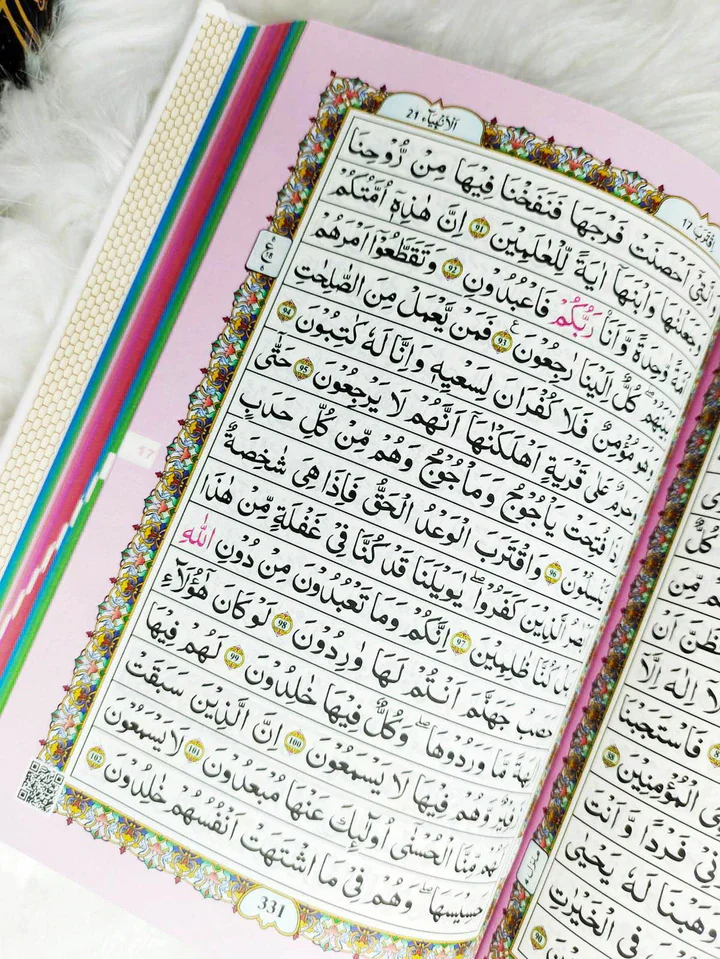 الۡاَنۡۢبِيَآء 21
اِقۡتَرَبَ 17
وَالَّتِيۡۤ اَحۡصَنَتۡ فَرۡجَهَا فَنَفَخۡنَا فِيۡهَا مِنۡ رُّوۡحِنَا
وَجَعَلۡنٰهَا وَابۡنَهَاۤ اٰيَةً لِّلۡعٰلَمِيۡنَ 91 اِنَّ هٰذِهٖۤ اُمَّتُكُمۡ
اُمَّةً وَّاحِدَةً وَّاَنَا رَبُّكُمۡ فَاعۡبُدُوۡنِ 92 وَتَقَطَّعُوۡۤا اَمۡرَهُمۡ
بَيۡنَهُمۡؕ كُلٌّ اِلَيۡنَا رٰجِعُوۡنَ 93 فَمَنۡ يَّعۡمَلۡ مِنَ الصّٰلِحٰتِ
وَهُوَ مُؤۡمِنٌ فَلَا كُفۡرَانَ لِسَعۡيِهٖ وَاِنَّا لَهٗ كٰتِبُوۡنَ 94
وَحَرٰمٌ عَلٰى قَرۡيَةٍ اَهۡلَكۡنٰهَاۤ اَنَّهُمۡ لَا يَرۡجِعُوۡنَ 95 حَتّٰٓى
اِذَا فُتِحَتۡ يَاۡجُوۡجُ وَمَاۡجُوۡجُ وَهُمۡ مِّنۡ كُلِّ حَدَبٍ
يَّنۡسِلُوۡنَ 96 وَاقۡتَرَبَ الۡوَعۡدُ الۡحَقُّ فَاِذَا هِىَ شٰخِصَةٌ
اَبۡصَارُ الَّذِيۡنَ كَفَرُوۡاؕ يٰوَيۡلَنَا قَدۡ كُنَّا فِىۡ غَفۡلَةٍ مِّنۡ هٰذَا
بَلۡ كُنَّا ظٰلِمِيۡنَ 97 اِنَّكُمۡ وَمَا تَعۡبُدُوۡنَ مِنۡ دُوۡنِ اللّٰهِ
حَصَبُ جَهَنَّمَؕ اَنۡتُمۡ لَهَا وٰرِدُوۡنَ 98 لَوۡ كَانَ هٰٓؤُلَآءِ
اٰلِهَةً مَّا وَرَدُوۡهَاؕ وَكُلٌّ فِيۡهَا خٰلِدُوۡنَ 99 لَهُمۡ فِيۡهَا
زَفِيۡرٌ وَّهُمۡ فِيۡهَا لَا يَسۡمَعُوۡنَ 100 اِنَّ الَّذِيۡنَ سَبَقَتۡ
لَهُمۡ مِّنَّا الۡحُسۡنٰٓىۙ اُولٰٓئِكَ عَنۡهَا مُبۡعَدُوۡنَ 101 لَا يَسۡمَعُوۡنَ
حَسِيۡسَهَاۚ وَهُمۡ فِىۡ مَا اشۡتَهَتۡ اَنۡفُسُهُمۡ خٰلِدُوۡنَ 102
331
17
كُلٌّ
اِلٰهَ اِلَّا
فَاسۡتَجَبۡنَا
الۡمُؤۡمِنِيۡنَ 88
فَرۡدًا وَّاَنۡتَ
وَوَهَبۡنَا لَهٗ يَحۡيٰى
فِى الۡخَيۡرٰتِ
90